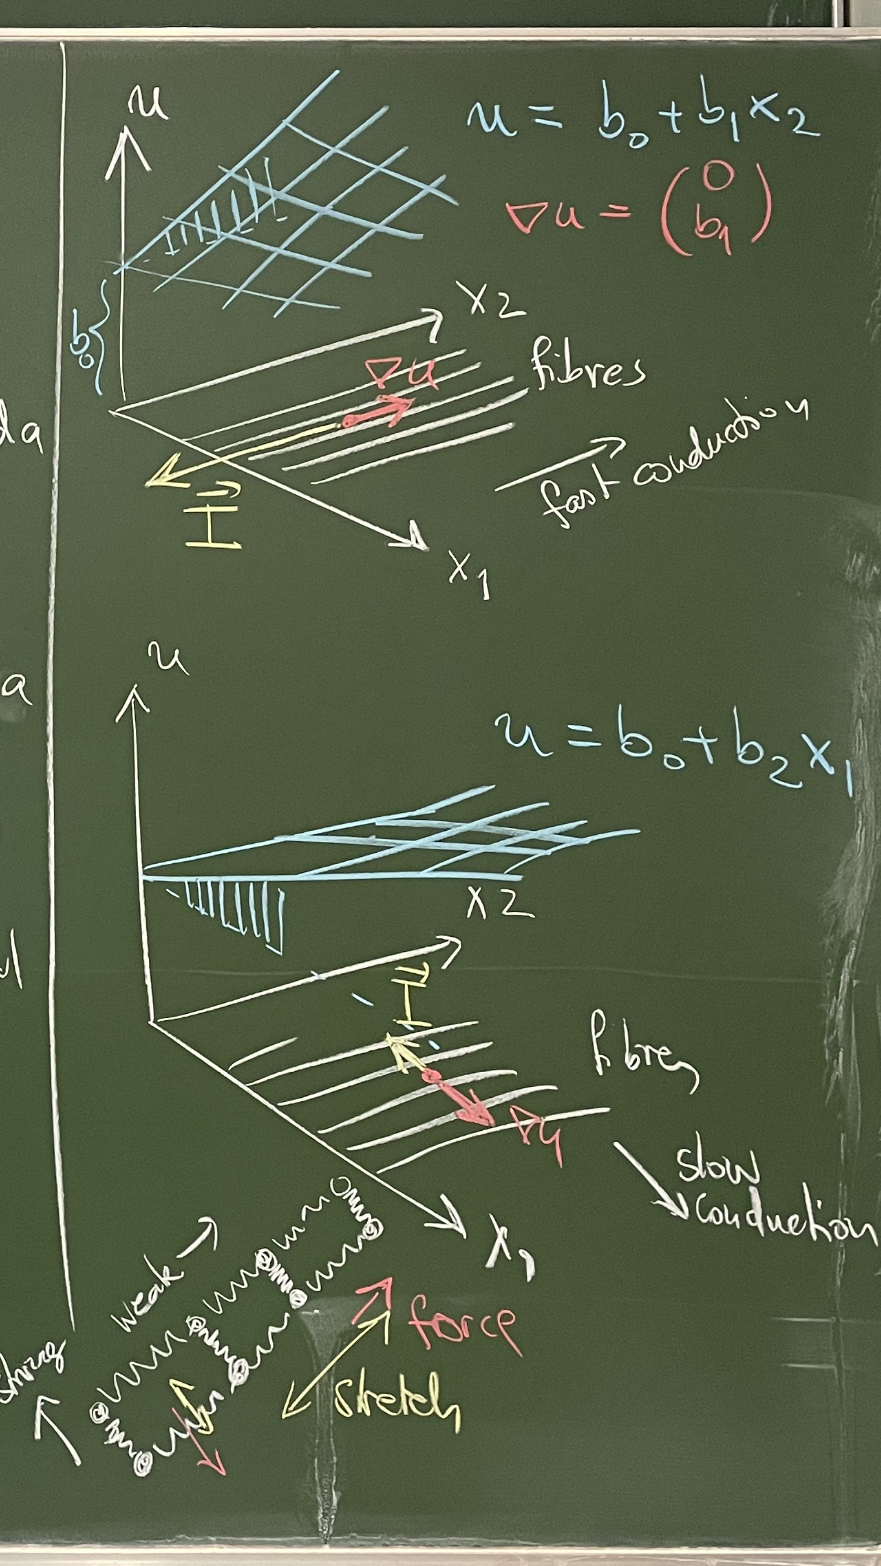 u
u = b₀ + b₁x₂
∇u = (0 b₁)
b₀
x₂
∇u
fibres
da
fast conduction
I⃗
x₁
u
a
u = b₀ + b₂x₁
x₂
I⃗
fibres
∇u
slow
conduction
x₁
weak
force
stretch